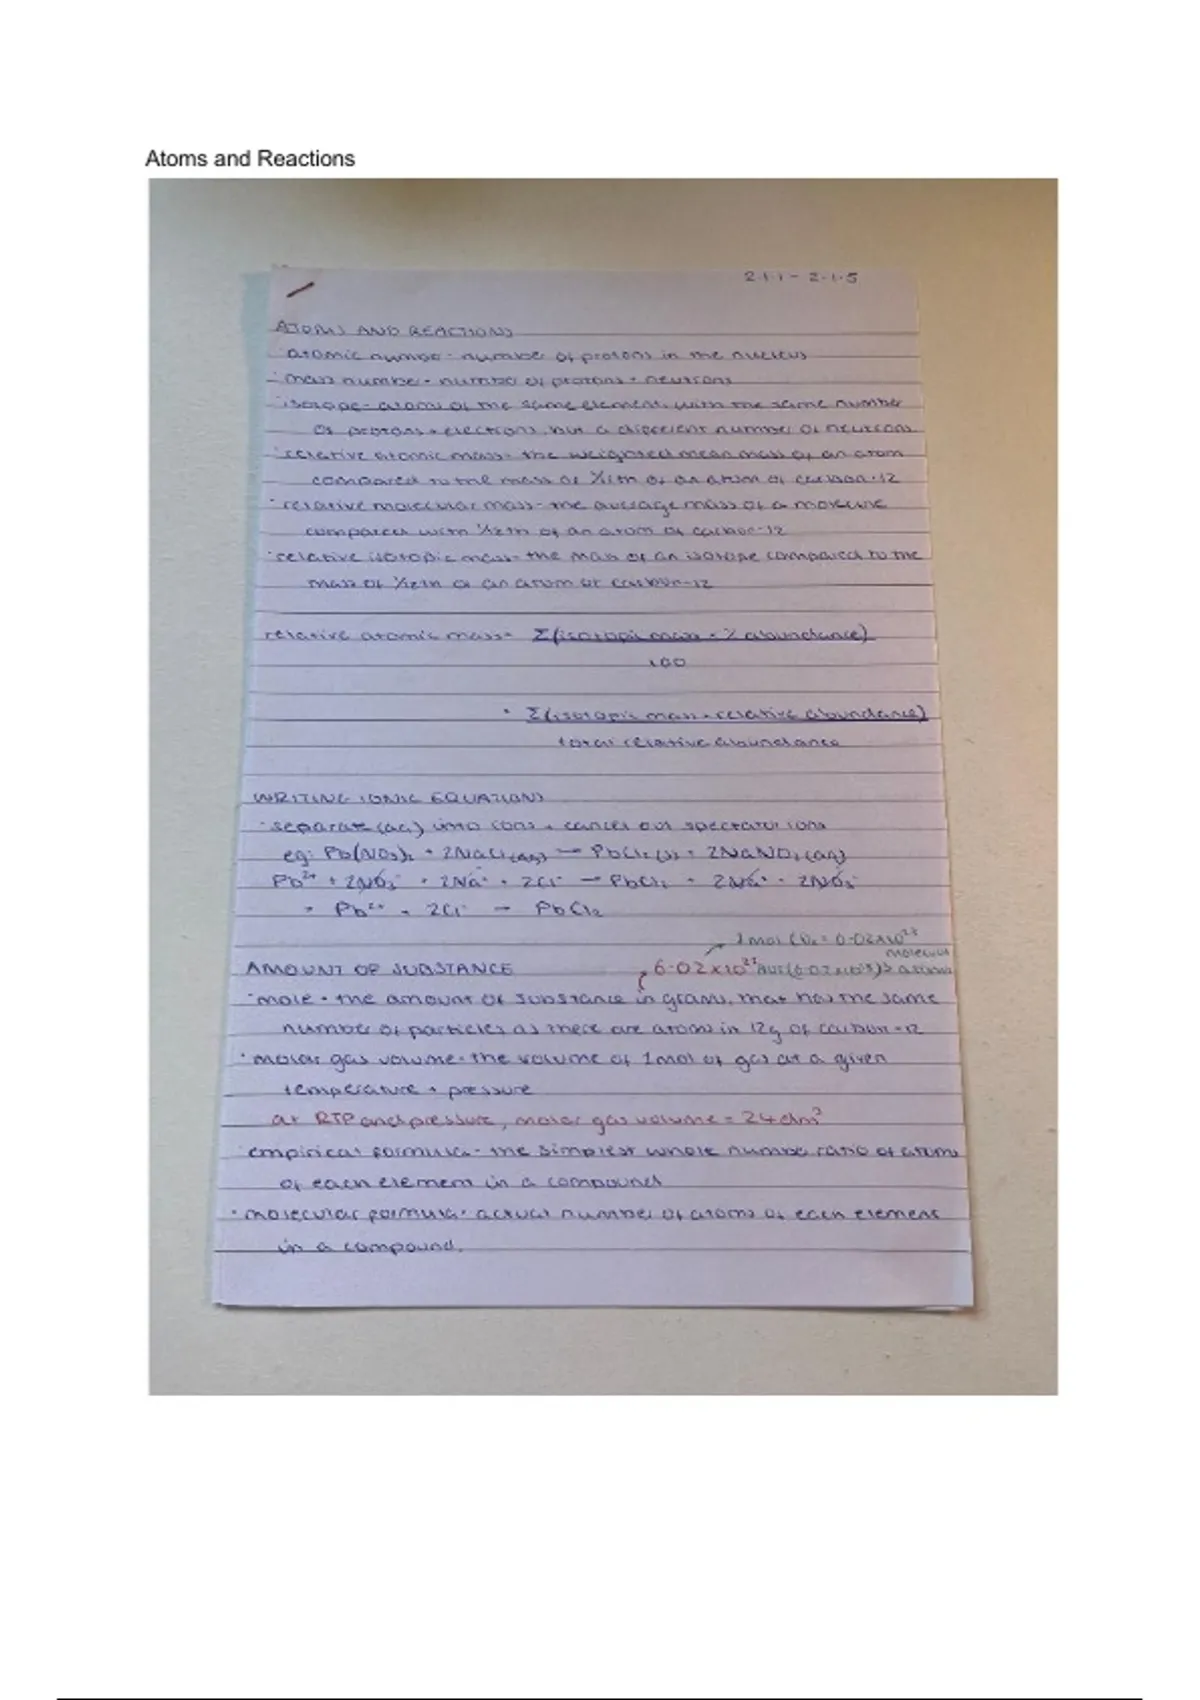 Atoms and Reactions
2.1.1 - 2.1.5
ATOMS AND REACTIONS
· atomic number - number of protons in the nucleus
· mass number - number of protons + neutrons
· isotope - atoms of the same element, with the same number
of protons + electrons, but a different number of neutrons
· relative atomic mass - the weighted mean mass of an atom
compared to the mass of 1/12th of an atom of carbon-12
· relative molecular mass - the average mass of a molecule
compared with 1/12th of an atom of carbon-12
· relative isotopic mass - the mass of an isotope compared to the
mass of 1/12th of an atom of carbon-12
relative atomic mass = Σ(isotopic mass × % abundance)
100
= Σ(isotopic mass × relative abundance)
total relative abundance
WRITING IONIC EQUATIONS
· separate (aq) into ions + cancel out spectator ions
eg: Pb(NO₃)₂ + 2NaCl(aq) → PbCl₂(s) + 2NaNO₃(aq)
Pb²⁺ + 2NO₃⁻ + 2Na⁺ + 2Cl⁻ → PbCl₂ + 2Na⁺ + 2NO₃⁻
= Pb²⁺ + 2Cl⁻ → PbCl₂
1 mol CO₂ = 6.02×10²³
molecules
AMOUNT OF SUBSTANCE 6.02×10²³ but (6.02×10²³)3 atoms
· mole - the amount of substance in grams, that has the same
number of particles as there are atoms in 12g of carbon-12
· molar gas volume - the volume of 1mol of gas at a given
temperature + pressure
at RTP and pressure, molar gas volume = 24dm³
· empirical formula - the simplest whole number ratio of atoms
of each element in a compound
· molecular formula - actual number of atoms of each element
in a compound.